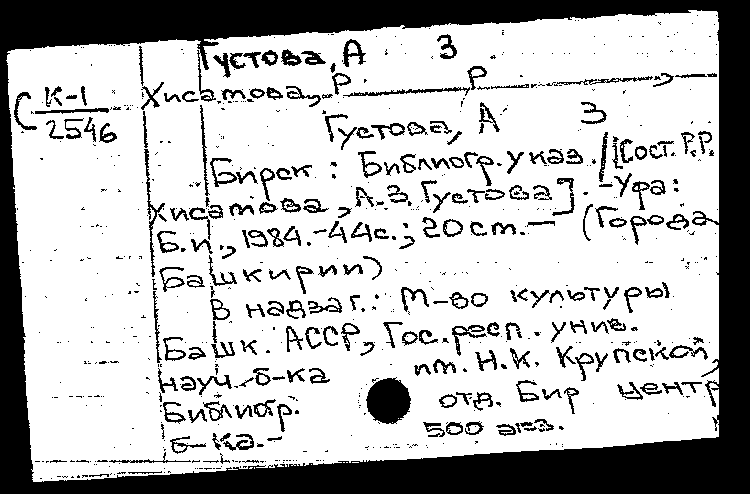 Густова, А З
С К-1
2546
Хисатова, Р Р
Густова, А З
Бирск : Библиогр. указ. /[Сост. Р.Р.
Хисатова, А.З. Густова]. -Уфа:
Б.и., 1984.-44с.; 20 см.— (Города
Башкирии)
В надзаг.: М-во культуры
Башк. АССР, Гос. респ. унив.
науч. б-ка им. Н.К. Крупской,
Библиогр. отд. Бир центр
б-ка.- 500 экз.